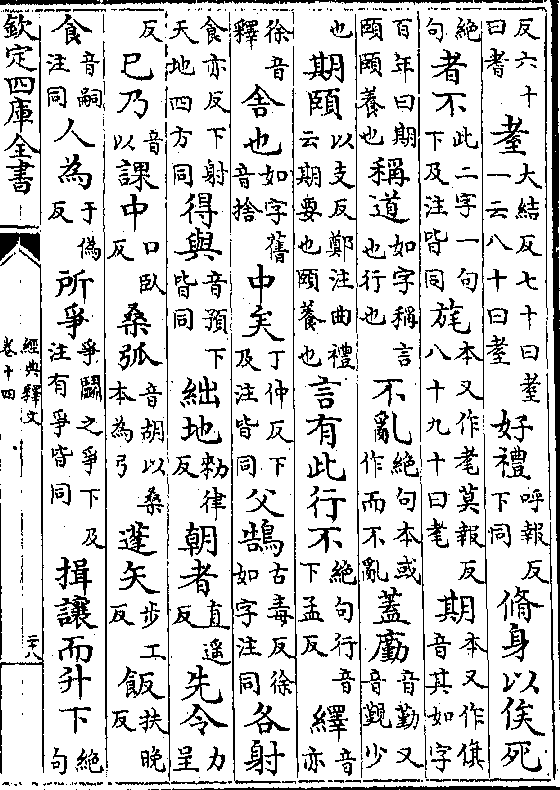 反六十曰耆耋大結反七十曰耋一云八十曰耋好禮呼報反下同脩身以俟死
絶句者不此二字一句下及注皆同旄本又作耄莫報反八十九十曰耄期本又作倛音其如字
百年曰期頤頤養也稱道如字稱言也行也不亂絶句本或作而不亂蓋𠪱音勤又音覲少
也期頤以支反鄭注曲禮云期要也頤養也言有此行不絶句行音下孟反繹音亦
徐音釋舍也如字舊音捨中矣丁仲反下及注皆同父鵠古毒反徐如字注同各射
食亦反下射天地四方同得與音預下皆同絀地勑律反朝者直遥反先令力呈
反巳乃音以課中口卧反桑弧音胡以桑本為弓蓬矢步工反飯扶晚反
食音嗣注同人為于偽反所爭爭鬭之爭下及注有爭皆同揖讓而升下絶句
欽定四庫全書
經典釋文
卷十四
二十八